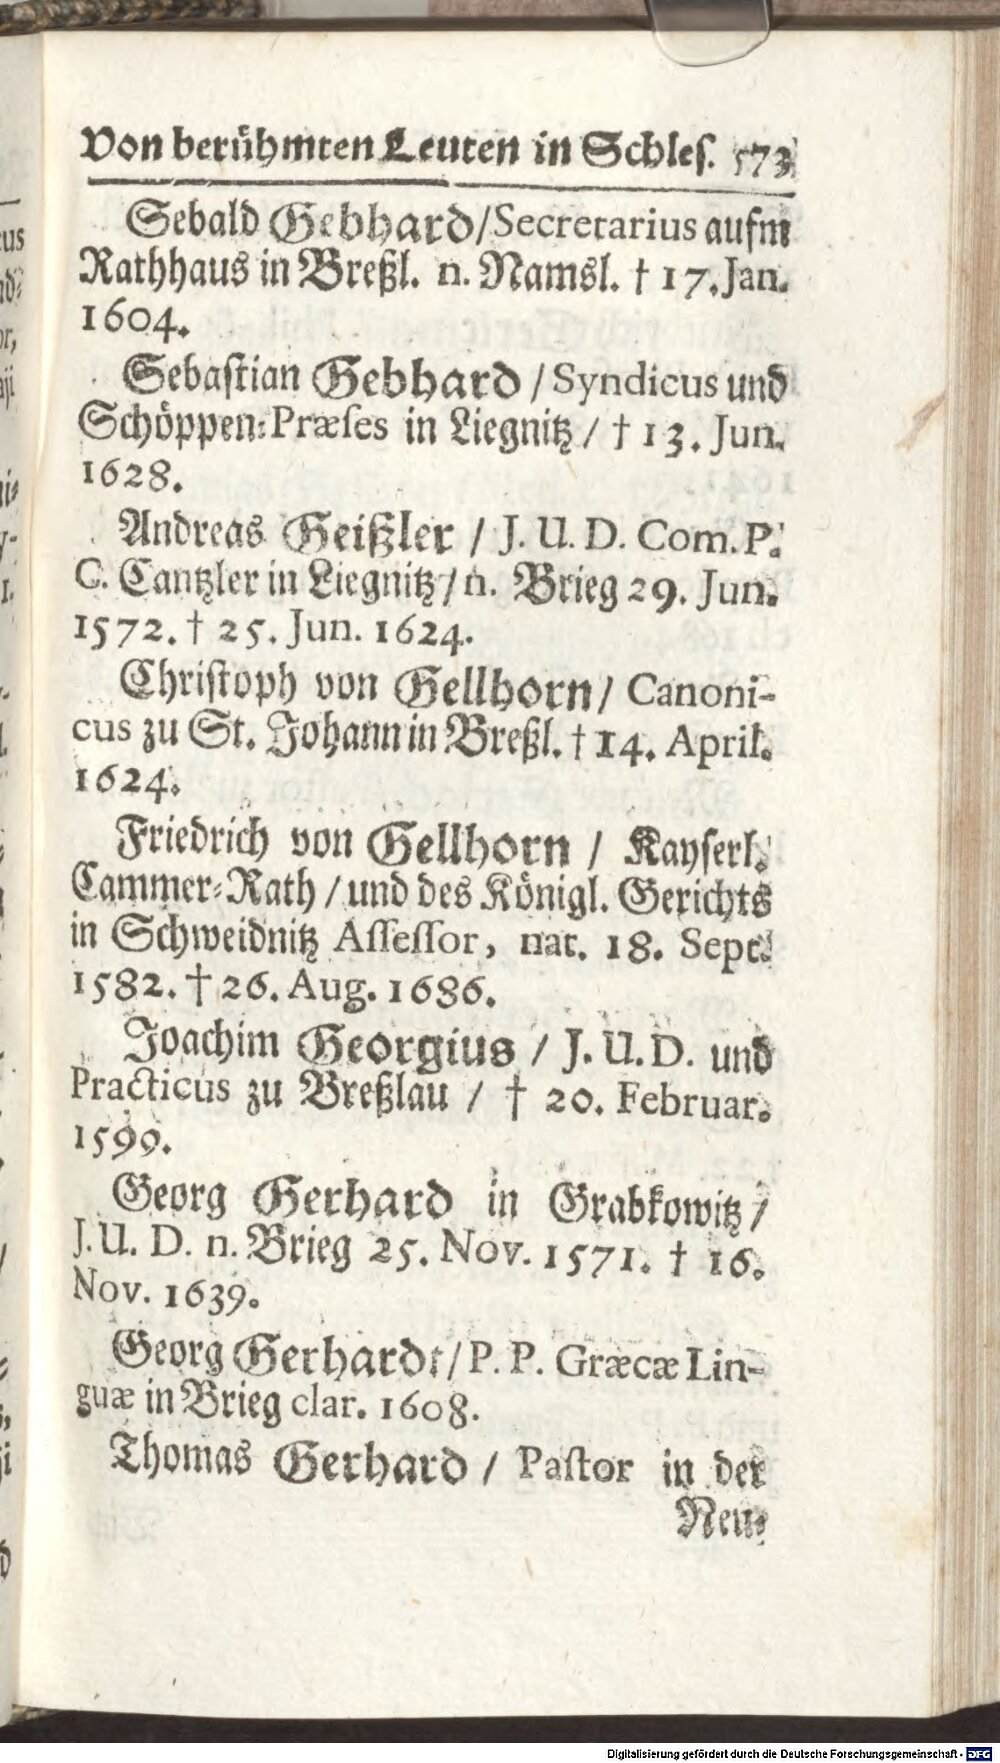 Von berühmten Leuten in Schles. 573
Sebald Gebhard/Secretarius aufm
Rathhaus in Breßl. n. Namsl. † 17. Jan.
1604.
Sebastian Gebhard / Syndicus und
Schöppen-Præses in Liegnitz / † 13. Jun.
1628.
Andreas Geißler / J. U. D. Com. P.
C. Cantzler in Liegnitz / n. Brieg 29. Jun.
1572. † 25. Jun. 1624.
Christoph von Gellhorn / Canoni-
cus zu St. Johann in Breßl. † 14. April.
1624.
Friedrich von Gellhorn / Kayserl.
Cammer-Rath / und des Königl. Gerichts
in Schweidnitz Assessor, nat. 18. Sept.
1582. † 26. Aug. 1686.
Joachim Georgius / J. U. D. und
Practicus zu Breßlau / † 20. Februar.
1599.
Georg Gerhard in Grabkowitz /
J. U. D. n. Brieg 25. Nov. 1571. † 16.
Nov. 1639.
Georg Gerhardt / P. P. Græcæ Lin-
guæ in Brieg clar. 1608.
Thomas Gerhard / Pastor in der
Neu-
Digitalisierung gefördert durch die Deutsche Forschungsgemeinschaft - DFG